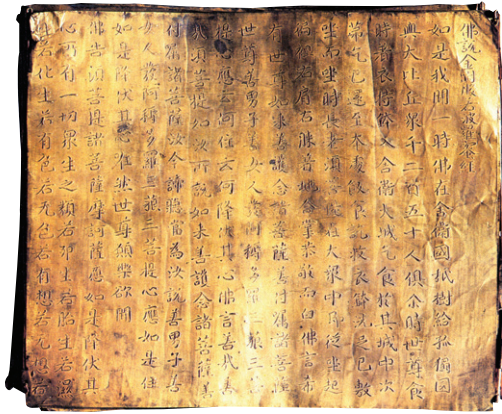 佛說金剛般若波羅蜜經
如是我聞一時佛在舍衛國祇樹給孤獨園
與大比丘眾千二百五十人俱爾時世尊食
時著衣持鉢入舍衛大城乞食於其城中次
第乞已還至本處飯食訖收衣鉢洗足已敷
座而坐時長老須菩提在大眾中即從座起
偏袒右肩右膝著地合掌恭敬而白佛言希
有世尊如來善護念諸菩薩善付囑諸菩薩
世尊善男子善女人發阿耨多羅三藐三菩
提心應云何住云何降伏其心佛言善哉善
哉須菩提如汝所說如來善護念諸菩薩善
付囑諸菩薩汝今諦聽當為汝說善男子善
女人發阿耨多羅三藐三菩提心應如是住
如是降伏其心唯然世尊願樂欲聞
佛告須菩提諸菩薩摩訶薩應如是降伏其
心所有一切眾生之類若卵生若胎生若濕
生若化生若有色若无色若有想若无想若